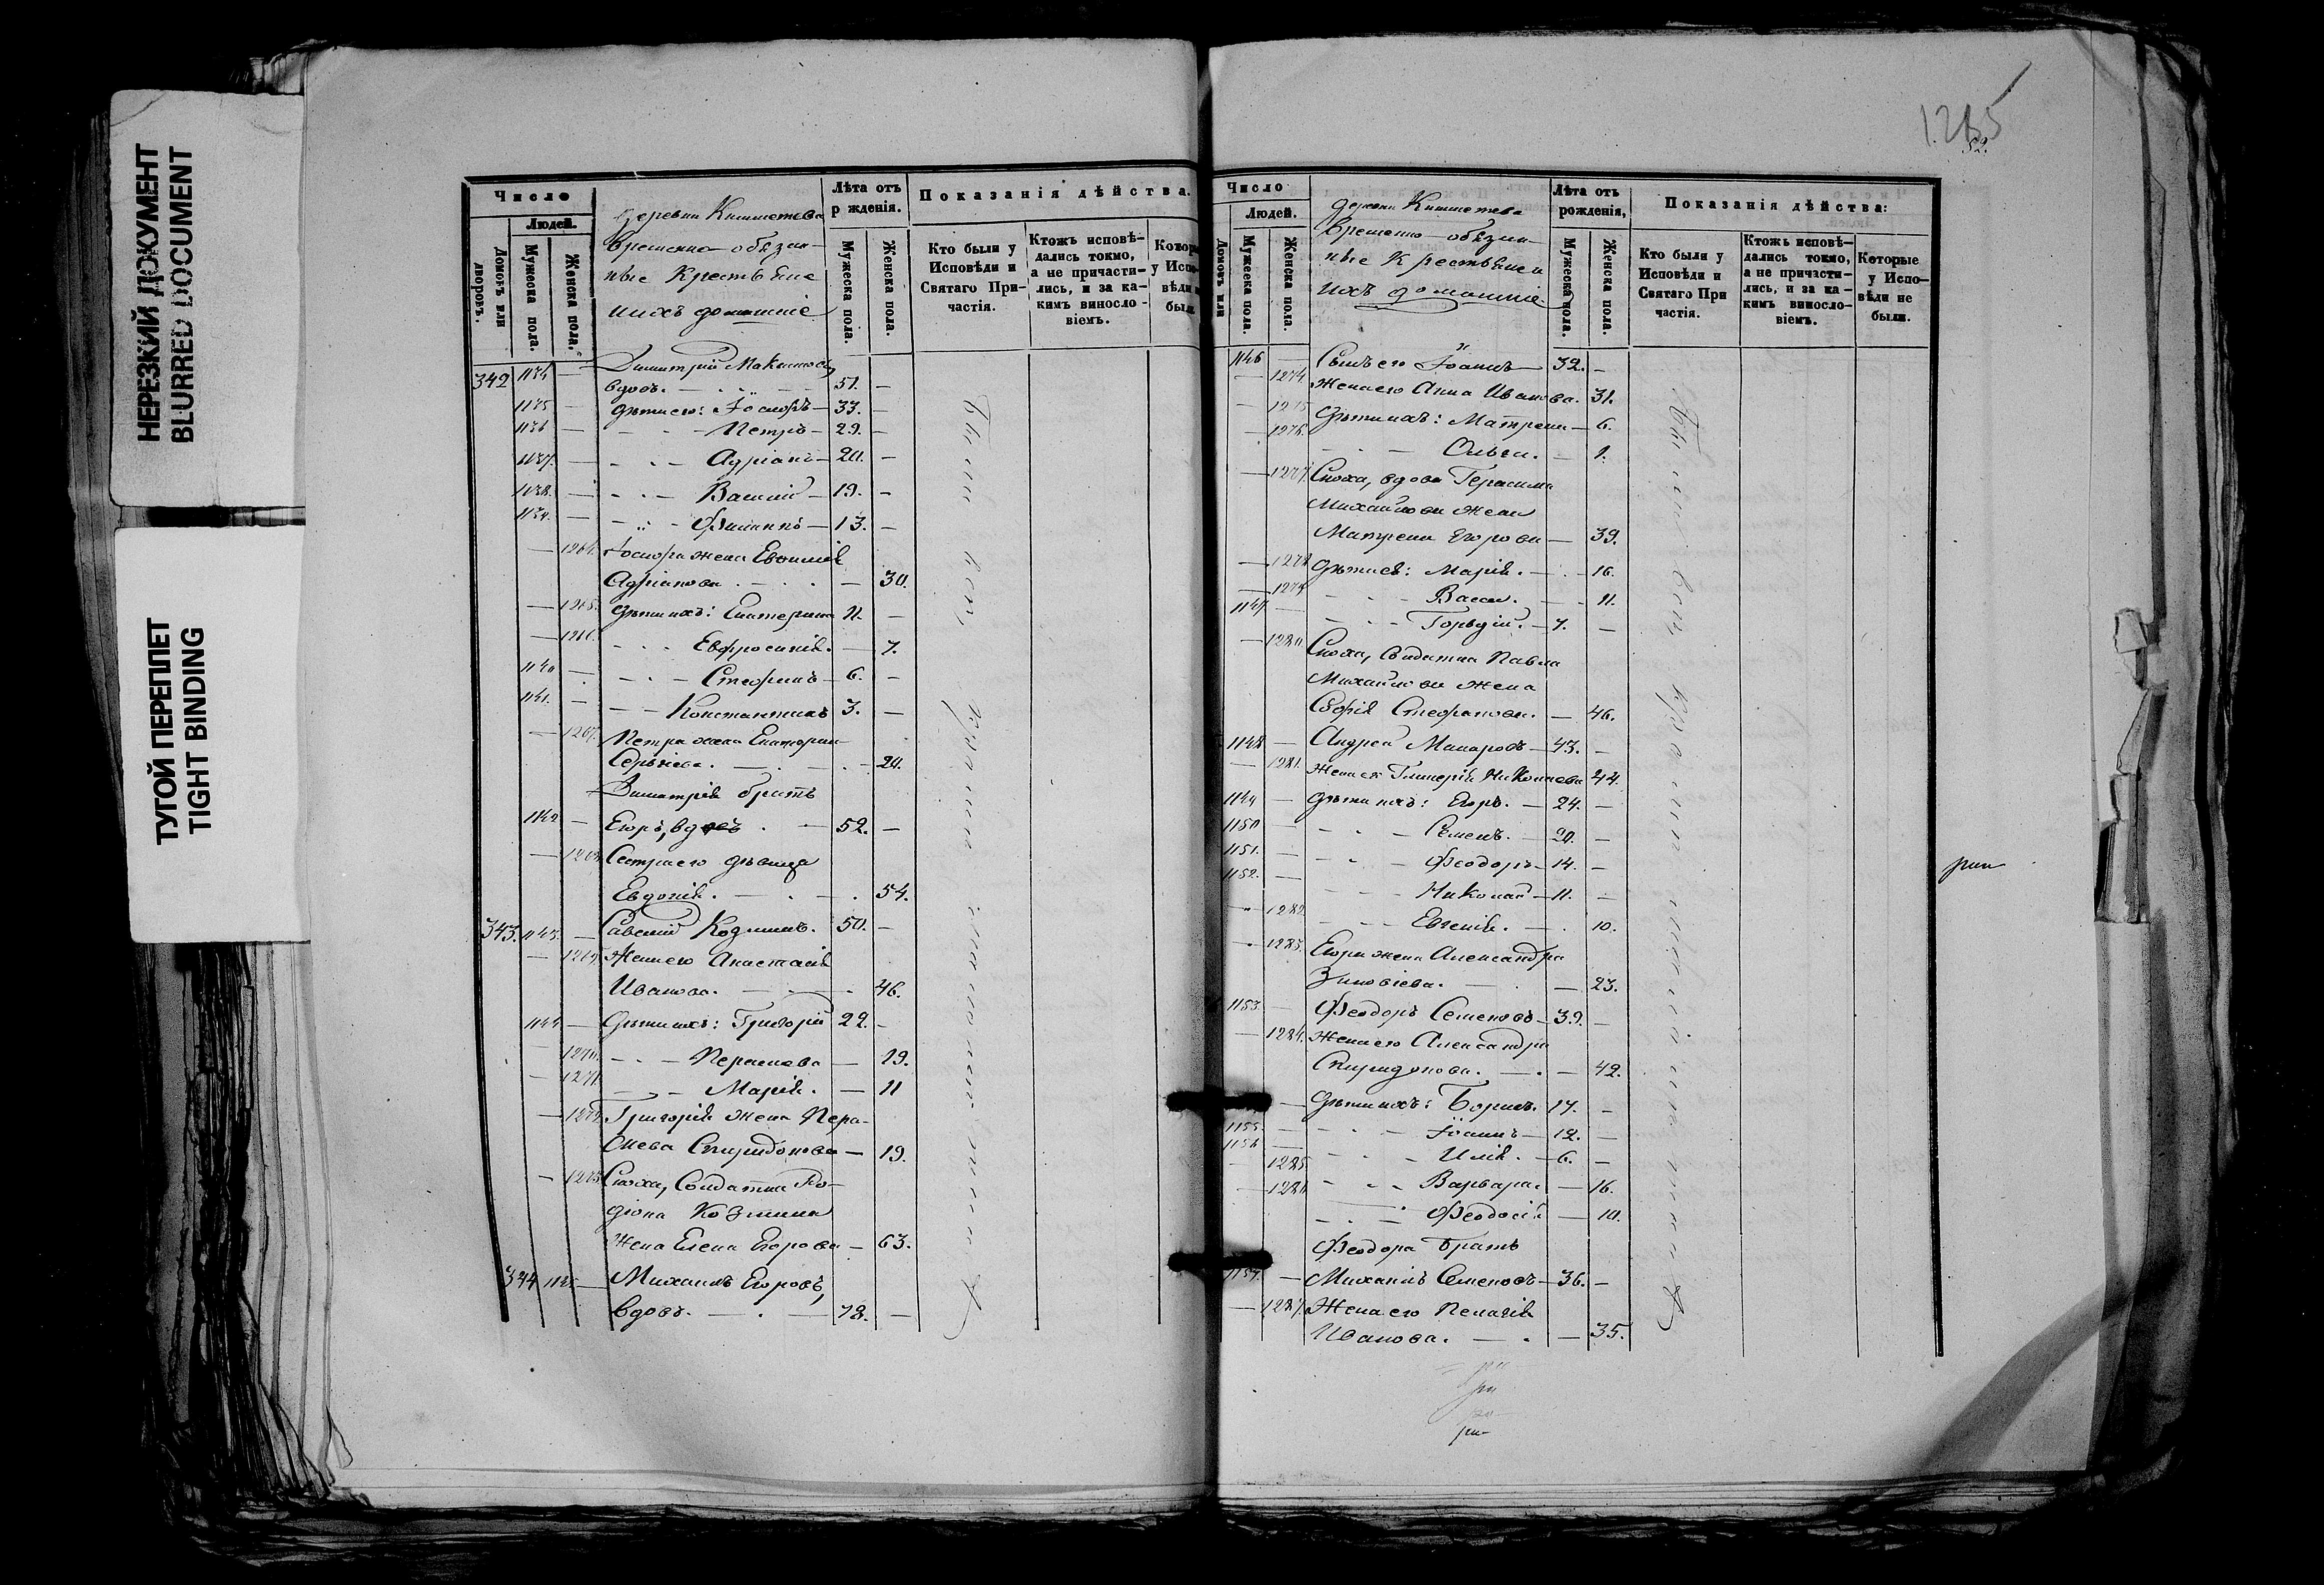 НЕРЕЗКИЙ ДОКУМЕНТ
BLURRED DOCUMENT
ТУГОЙ ПЕРЕПЛЕТ
TIGHT BINDING
Число
Людей.
Домовъ или дворовъ.
Мужеска пола.
Женска пола.
деревни
Временно-обязан-
ные Крестьяне
и ихъ домашніе
Лѣта отъ
р жденія.
Мужеска пола.
Женска пола.
Показанія дѣйства.
Кто были у
Исповѣди и
Святаго При-
частія.
Ктожъ исповѣ-
дались токмо,
а не причасти-
лись, и за ка-
кимъ винсло-
віемъ.
Котор
у Испо
вѣди н
был
342 1134 — Димитрій Максимовъ
вдовъ. 51. —
1135 — дѣти его: Іосифъ — 33. —
1136 — Петръ — 29. —
1137. — Адріанъ — 20. —
1138. — Василій — 19. —
1139. — Филиппъ — 13. —
— 1264. Іосифа жена Евфимія
Адріанова. — 30.
— 1265. дѣти ихъ: Екатерина 11. —
— 1266. Евфросинія. — 7.
1140 — Стефанъ — 6. —
1141. — Константинъ 3. —
— 1267. Петра жена Екатерина
Сергѣева. — 20.
Димитрія братъ
1142 — Егоръ, вдовъ — 52. —
— 1268. Сестра его дѣвица
Евдокія. — 54.
343. 1143. — Савелій Козминъ. 50. —
— 1269. Жена его Анастасія
Иванова. — 46.
1144 — Дѣти ихъ: Григорій 22. —
1270. Парасцева — 19.
— 1271. Марія. — 11
— 1272. Григорія жена Пара-
сцева Спиридонова — 19.
— 1273. Сноха, Солдатка Ро-
діона Козмина
жена Елена Егорова — 63.
344 1145 — Михаилъ Егоровъ,
вдовъ. — 72. —
Были
всѣ
1.285
52.
Число
Людей.
Домовъ или
Мужеска пола.
Женска пола.
деревни
Временно-обязан-
ные Крестьяне и
ихъ домашніе
Лѣта отъ
рожденія,
Мужеска пола.
Женска пола.
Показанія дѣйства:
Кто были у
Исповѣди и
Святаго При
частія.
Ктожъ исповѣ-
дались токмо,
а не причасти-
лись, и за ка-
кимъ винсло-
віемъ.
Которые
у Испо-
вѣди не
были.
1146 — Сынъ его Іоаннъ — 32. —
— 1274. Жена его Анна Иванова. 31.
— 1275 Дѣти ихъ: Матрена — 6.
— 1276. Ольга. — 1.
— 1277. Сноха, вдова Герасима
Михайлова жена
Матрена Егорова — 39.
— 1278 Дѣти ея: Марія. — 16.
— 1279 Васса. — 11.
1147 — Гордій. — 7. —
— 1280 Сноха, Солдатка Павла
Михайлова жена
Софія Стефанова. — 46.
1148 — Андрей Макаровъ — 43. —
— 1281. Жена его Гликерія Николаева 44.
1149 — Дѣти ихъ: Егоръ. — 24. —
1150 — Семенъ. — 20. —
1151. — Феодоръ — 14. —
1152. — Николай — 11. —
— 1282. Евгенія. — 10.
— 1283. Егора жена Александра
Зиновіева. — 23.
1153. — Феодоръ Семеновъ — 39. —
— 1284. Жена его Александра
Спиридонова. — 42.
— Дѣти ихъ: Борисъ. 17. —
1155. — Іоаннъ — 12. —
1156 — Илія. — 6. —
— 1285 Варвара. — 16.
— 1286 Феодосія — 10.
Феодора братъ
1157. — Михаилъ Семеновъ — 36. —
— 1287. Жена его Пелагія
Иванова. — 35.
Были
всѣ